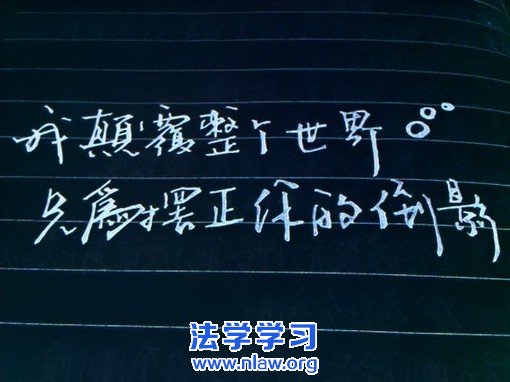 我顛覆整个世界。。。
只爲擺正你的倒影
法学学习
www.nlaw.org